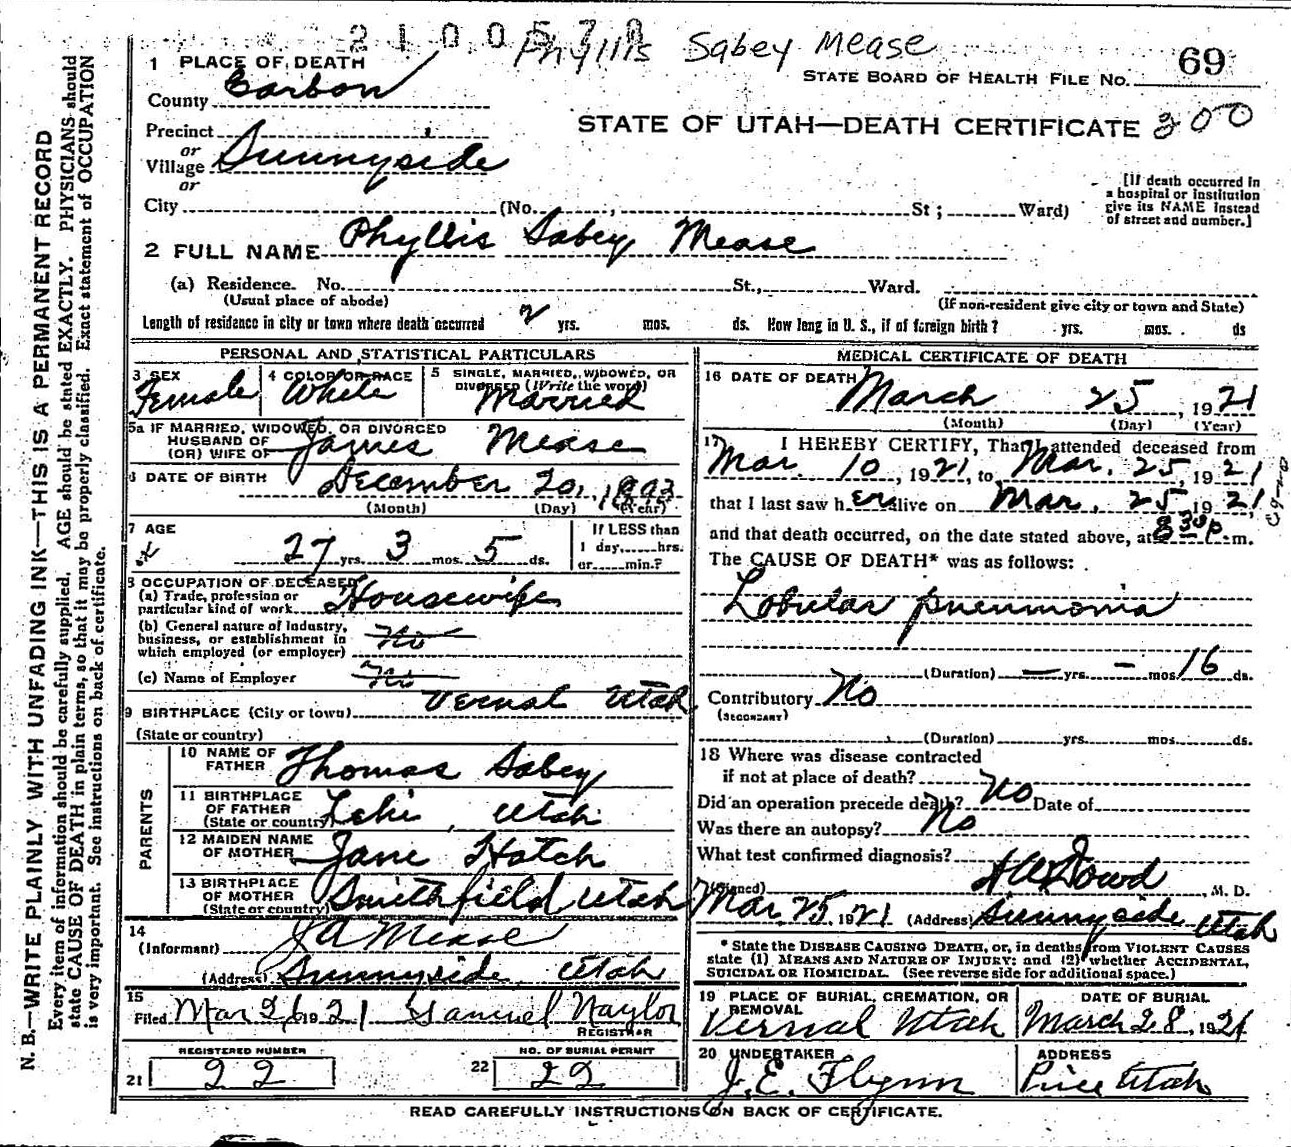 2100578
Phyllis Sabey Mease
69
STATE BOARD OF HEALTH FILE NO.
1 PLACE OF DEATH
County Carbon
STATE OF UTAH—DEATH CERTIFICATE 200
Precinct
or
Village Sunnyside
or
City (No. St; Ward)
[If death occurred in
a hospital or institution
give its NAME instead
of street and number.]
2 FULL NAME Phyllis Sabey Mease
(a) Residence. No. St., Ward.
(Usual place of abode) (If non-resident give city or town and State)
Length of residence in city or town where death occurred 2 yrs. mos. ds. How long in U. S., if of foreign birth? yrs. mos. ds
PERSONAL AND STATISTICAL PARTICULARS
3 SEX Female
4 COLOR OR RACE White
5 SINGLE, MARRIED, WIDOWED, OR
DIVORCED (Write the word) Married
5a IF MARRIED, WIDOWED, OR DIVORCED
HUSBAND OF
(OR) WIFE OF James Mease
6 DATE OF BIRTH December 20, 1893
(Month) (Day) (Year)
7 AGE
27 yrs. 3 mos. 5 ds.
If LESS than
1 day, hrs.
or min.?
8 OCCUPATION OF DECEASED
(a) Trade, profession or
particular kind of work Housewife
(b) General nature of Industry,
business, or establishment in
which employed (or employer) No
(c) Name of Employer No
9 BIRTHPLACE (City or town) Vernal Utah
(State or country)
PARENTS
10 NAME OF
FATHER Thomas Sabey
11 BIRTHPLACE
OF FATHER
(State or country) Lehi, Utah
12 MAIDEN NAME
OF MOTHER Jane Hatch
13 BIRTHPLACE
OF MOTHER
(State or country) Smithfield Utah
14
(Informant) J A Mease
(Address) Sunnyside, Utah
15
Filed Mar 26 1921 Samuel Naylor
REGISTRAR
REGISTERED NUMBER
21 22
NO. OF BURIAL PERMIT
22 22
MEDICAL CERTIFICATE OF DEATH
16 DATE OF DEATH March 25, 1921
(Month) (Day) (Year)
17 I HEREBY CERTIFY, That I attended deceased from
Mar. 10, 1921, to Mar. 25, 1921
that I last saw her alive on Mar. 25 1921,
and that death occurred, on the date stated above, at 8 30 p. m.
The CAUSE OF DEATH* was as follows:
Lobular pneumonia
(Duration) — yrs. — mos. 16 ds.
Contributory No
(SECONDARY)
(Duration) yrs. mos. ds.
18 Where was disease contracted
if not at place of death? No
Did an operation precede death? No Date of
Was there an autopsy? No
What test confirmed diagnosis?
(Signed) Dowd M. D.
Mar 25, 1921 (Address) Sunnyside Utah
* State the DISEASE CAUSING DEATH, or, in deaths from VIOLENT CAUSES
state (1) MEANS AND NATURE OF INJURY; and (2) whether ACCIDENTAL,
SUICIDAL OR HOMICIDAL. (See reverse side for additional space.)
19 PLACE OF BURIAL, CREMATION, OR
REMOVAL
Vernal Utah
DATE OF BURIAL
March 28, 1921
20 UNDERTAKER
J. E. Flynn
ADDRESS
Price Utah
READ CAREFULLY INSTRUCTIONS ON BACK OF CERTIFICATE.
N. B.—WRITE PLAINLY WITH UNFADING INK—THIS IS A PERMANENT RECORD
Every item of information should be carefully supplied. AGE should be stated EXACTLY. PHYSICIANS should
state CAUSE OF DEATH in plain terms, so that it may be properly classified. Exact statement of OCCUPATION
is very important. See instructions on back of certificate.